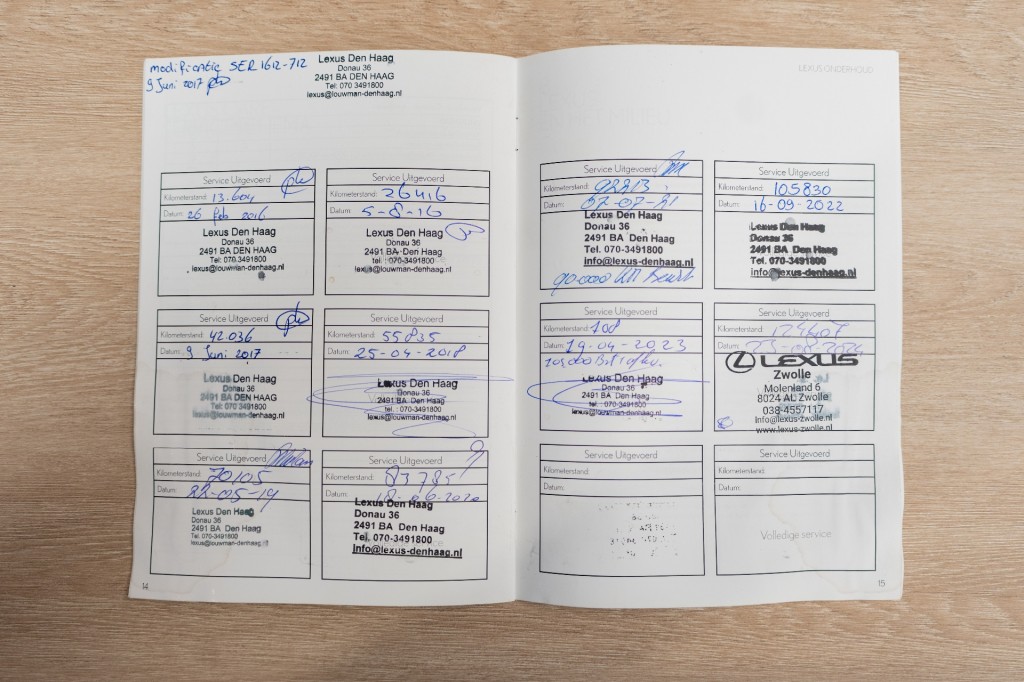 modificatie SER 1612-712
9 Juni 2017
Lexus Den Haag
Donau 36
2491 BA DEN HAAG
Tel: 070 3491800
lexus@louwman-denhaag.nl
Service Uitgevoerd
Kilometerstand: 13.604
Datum: 26 feb 2016
Lexus Den Haag
Donau 36
2491 BA DEN HAAG
Tel: 070-3491800
lexus@louwman-denhaag.nl
Service Uitgevoerd
Kilometerstand: 26416
Datum: 5-8-16
Lexus Den Haag
Donau 36
2491 BA DEN HAAG
Tel. : 070-3491800
lexus@louwman-denhaag.nl
Service Uitgevoerd
Kilometerstand: 42.036
Datum: 9 Juni 2017
Lexus Den Haag
Donau 36
2491 BA DEN HAAG
Tel: 070 3491800
lexus@louwman-denhaag.nl
Service Uitgevoerd
Kilometerstand: 55835
Datum: 25-04-2018
Lexus Den Haag
Donau 36
2491 BA Den Haag
tel. : 070-3491800
lexus@louwman-denhaag.nl
Service Uitgevoerd
Kilometerstand: 70105
Datum: 22-05-19
Lexus Den Haag
Donau 36
2491 BA DEN HAAG
Tel: 070 3491800
lexus@louwman-denhaag.nl
Service Uitgevoerd
Kilometerstand: 83785
Datum: 18-06-2020
Lexus Den Haag
Donau 36
2491 BA Den Haag
Tel. 070-3491800
info@lexus-denhaag.nl
14
LEXUS ONDERHOUD
Service Uitgevoerd
Kilometerstand:
Datum: 07-07-21
Lexus Den Haag
Donau 36
2491 BA Den Haag
Tel. 070-3491800
info@lexus-denhaag.nl
90.000 KM Beurt
Service Uitgevoerd
Kilometerstand: 105830
Datum: 16-09-2022
Lexus Den Haag
Donau 36
2491 BA Den Haag
Tel. 070-3491800
info@lexus-denhaag.nl
Service Uitgevoerd
Kilometerstand: 108
Datum: 19-04-2023
Lexus Den Haag
Donau 36
2491 BA Den Haag
tel. : 070-3491800
lexus@louwman-denhaag.nl
Service Uitgevoerd
Kilometerstand:
Datum:
LEXUS
Zwolle
Molenland 6
8024 AL Zwolle
038-4557117
info@lexus-zwolle.nl
www.lexus-zwolle.nl
Service Uitgevoerd
Kilometerstand:
Datum:
Service Uitgevoerd
Kilometerstand:
Datum:
Volledige service
15